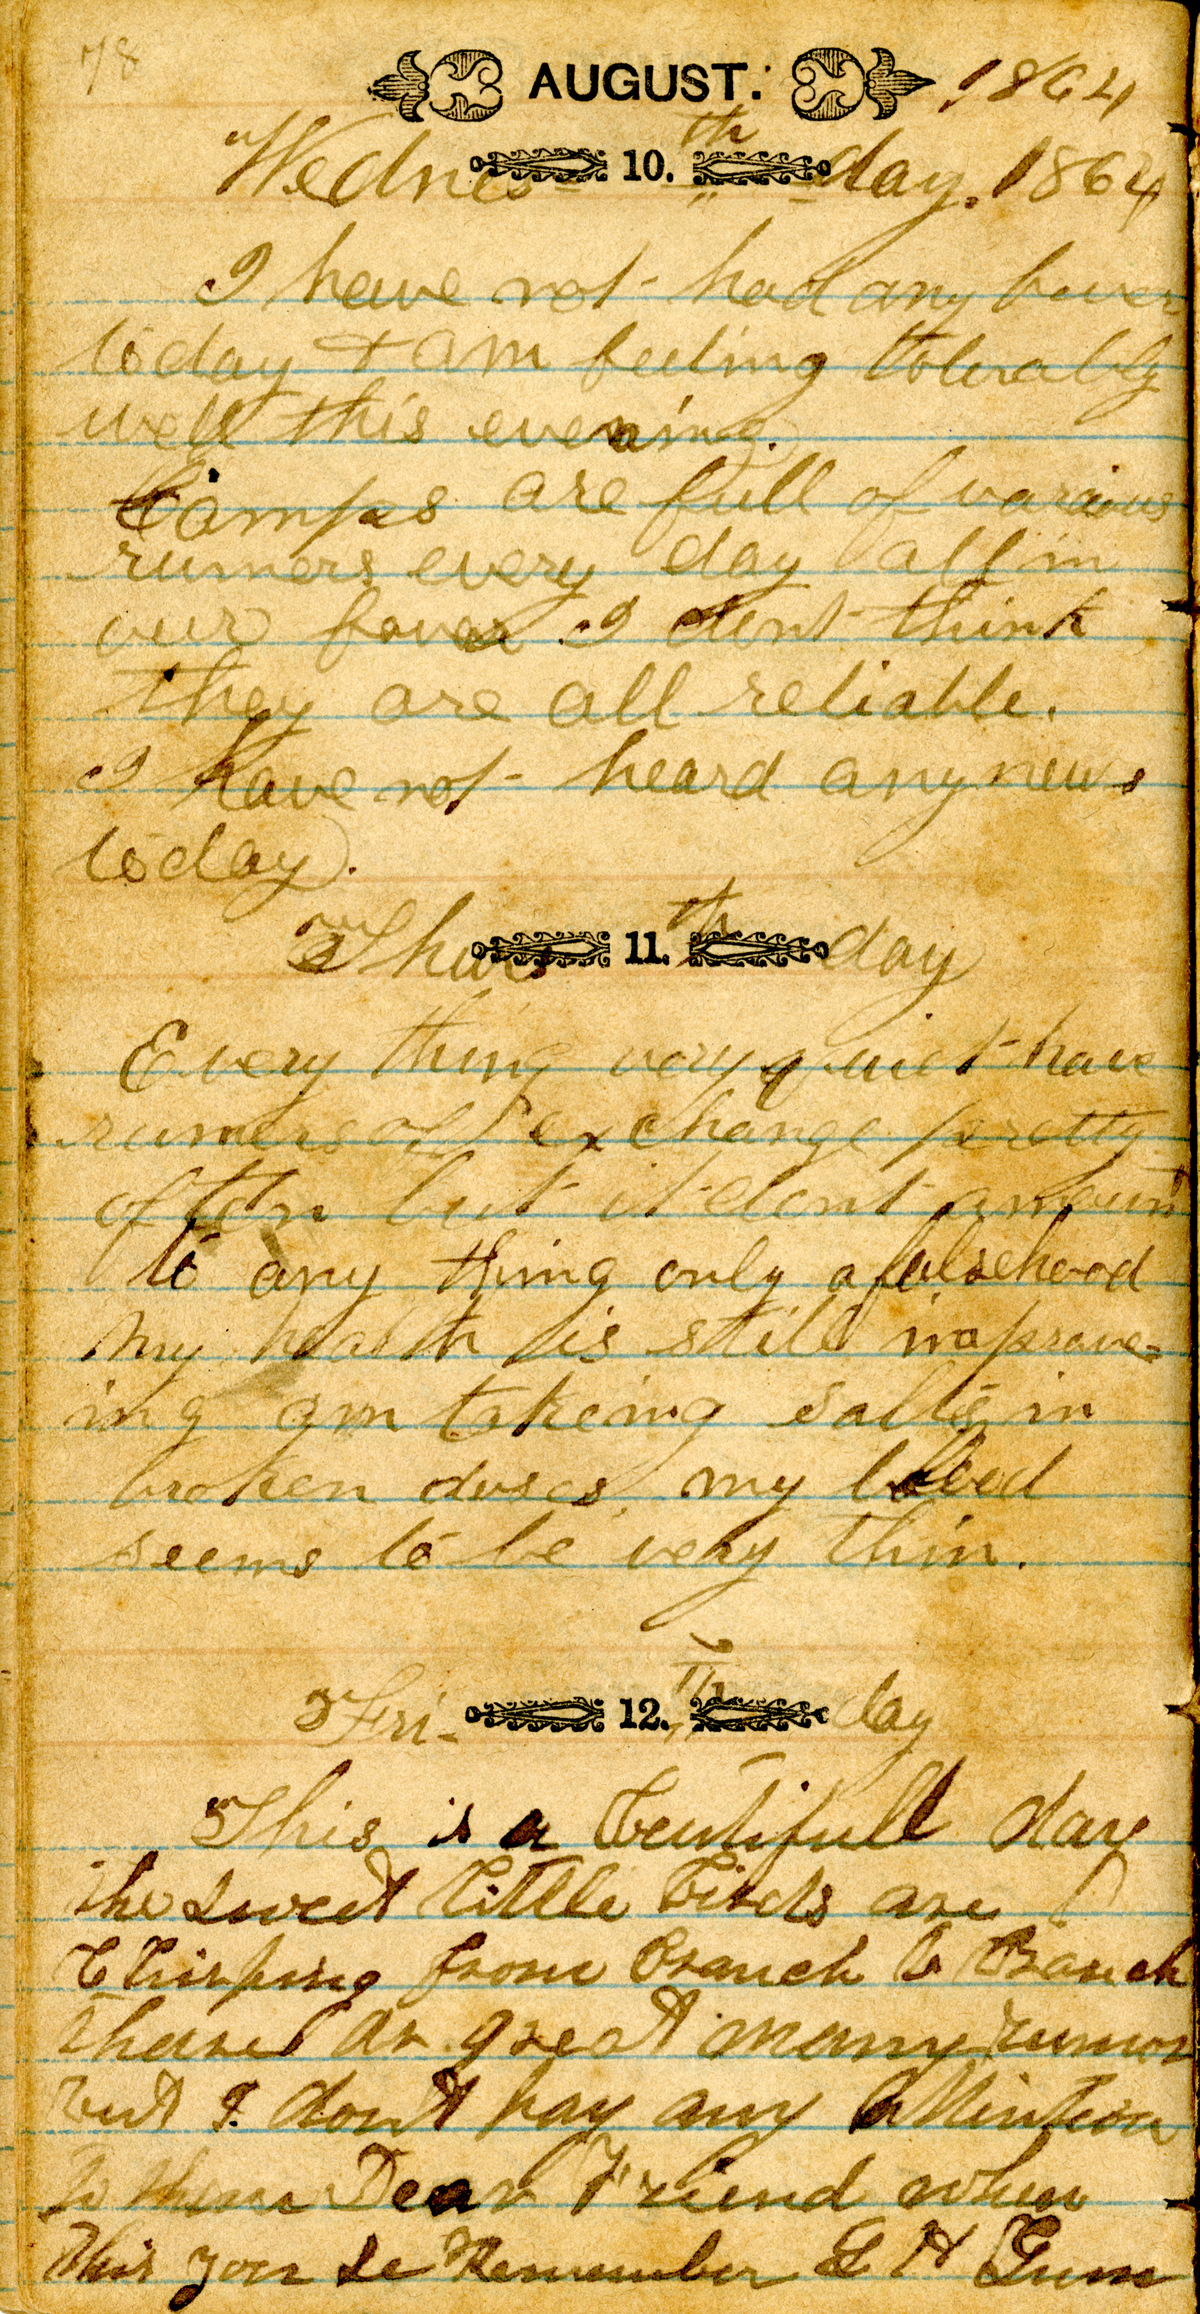 78
AUGUST. 1864
Wednes- 10.th day. 1864
I have not had any fever
today & am feeling tolerably
well this evening.
Camps are full of various
rumers every day all in
our favor I dont think
they are all reliable.
I have not heard any news
today.
Thurs 11.th day
Every thing very quiet have
rumers of exchange pretty
often but it dont amount
to any thing only a falsehood
my health is still improve-
ing am takeing salts in
broken doses. my blood
seems to be very thin.
Fri- 12.th day
This is a beutifull day
the sweet little birds are
Chirping from branch to Branch
thare ar great many rumors
but I dont pay any attintion
to them Dear Friend when
this you se Remember G H Gum